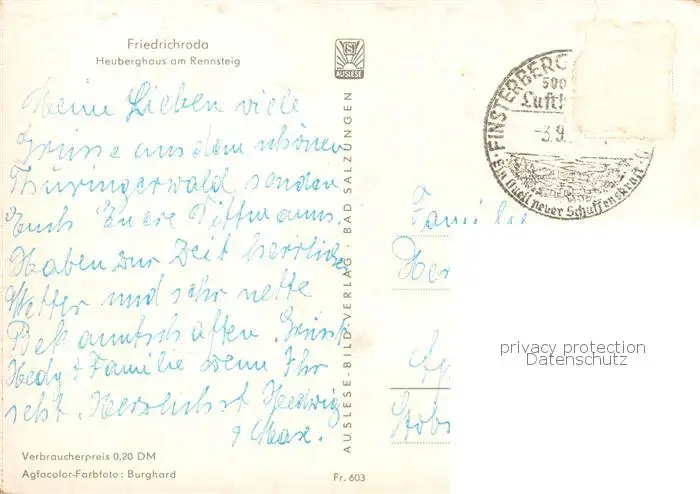 Friedrichroda
Heuberghaus am Rennsteig
S
AUSLESE
Meine Lieben viele
Grüsse aus dem schönen
Thüringerwald senden
Euch Euere Dittmanns.
Haben zur Zeit herrliches
Wetter und sehr nette
Bekanntschaften. Grüsst
Hedy + Familie wenn Ihr
seht. Herzlichst Hedwig
+ Max.
Verbraucherpreis 0,20 DM
Agfacolor-Farbfoto: Burghard
AUSLESE-BILD-VERLAG BAD SALZUNGEN
Fr. 603
FINSTERBERG
500
Luft
-3.9.
Ein Quell neuer Schaffenskraft
Familie
Her
privacy protection
Datenschutz